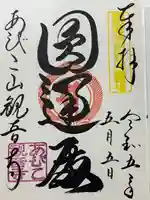 奉拝
令和五年
五月五日
圓通殿
あびこ山観音寺